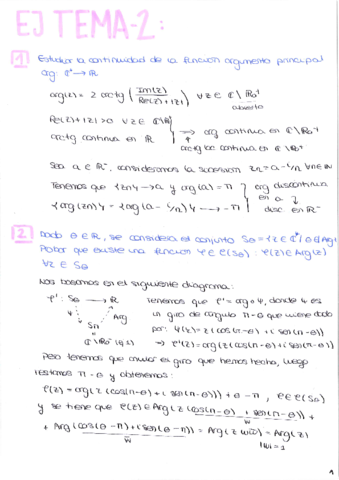 EJ TEMA-2:
1 Estudiar la continuidad de la función argumento principal
arg: ℂ* → ℝ
arg(z) = 2 arctg (Im(z) / Re(z)+|z|) ∀z ∈ ℂ \ ℝ₀
abierto
Re(z)+|z|>0 ∀z ∈ ℂ\ℝ
arctg continua en ℝ → arg continua en ℂ\ℝ₀
arctg loc continua en ℂ
Sea a ∈ ℝ⁻, consideramos la sucesión zn = a - i/n ∀n∈ℕ
Tenemos que {zn} → a y arg(a) = π } arg discontinua
en a
{arg(zn)} = {arg(a - i/n)} → -π disc. en ℝ⁻
2 Dado θ ∈ ℝ, se considera el conjunto Sθ = {z ∈ ℂ* / θ ∉ Arg
Probar que existe una función φ ∈ C(Sθ) : φ(z) ∈ Arg(z)
∀z ∈ Sθ
Nos basamos en el siguiente diagrama:
φ' : Sθ → ℝ Tenemos que φ' = arg∘ψ, donde ψ es
ψ Arg un giro de ángulo π-θ que viene dado
Sπ por: ψ(z) = z(cos(π-θ) + i sen(π-θ))
→ φ'(z) = arg(z(cos(π-θ)+i sen(π-θ))
Pero tenemos que anular el giro que hemos hecho, luego
restamos π-θ y obtenemos:
φ(z) = arg(z (cos(π-θ) + i sen(π-θ))) + θ - π, φ ∈ C(Sθ)
y se tiene que φ(z) ∈ Arg(z (cos(π-θ) + i sen(π-θ)) +
w
+ Arg(cos(θ-π)+i sen(θ-π)) = Arg(z w w̄) = Arg(z)
w̄ |w|=1
1